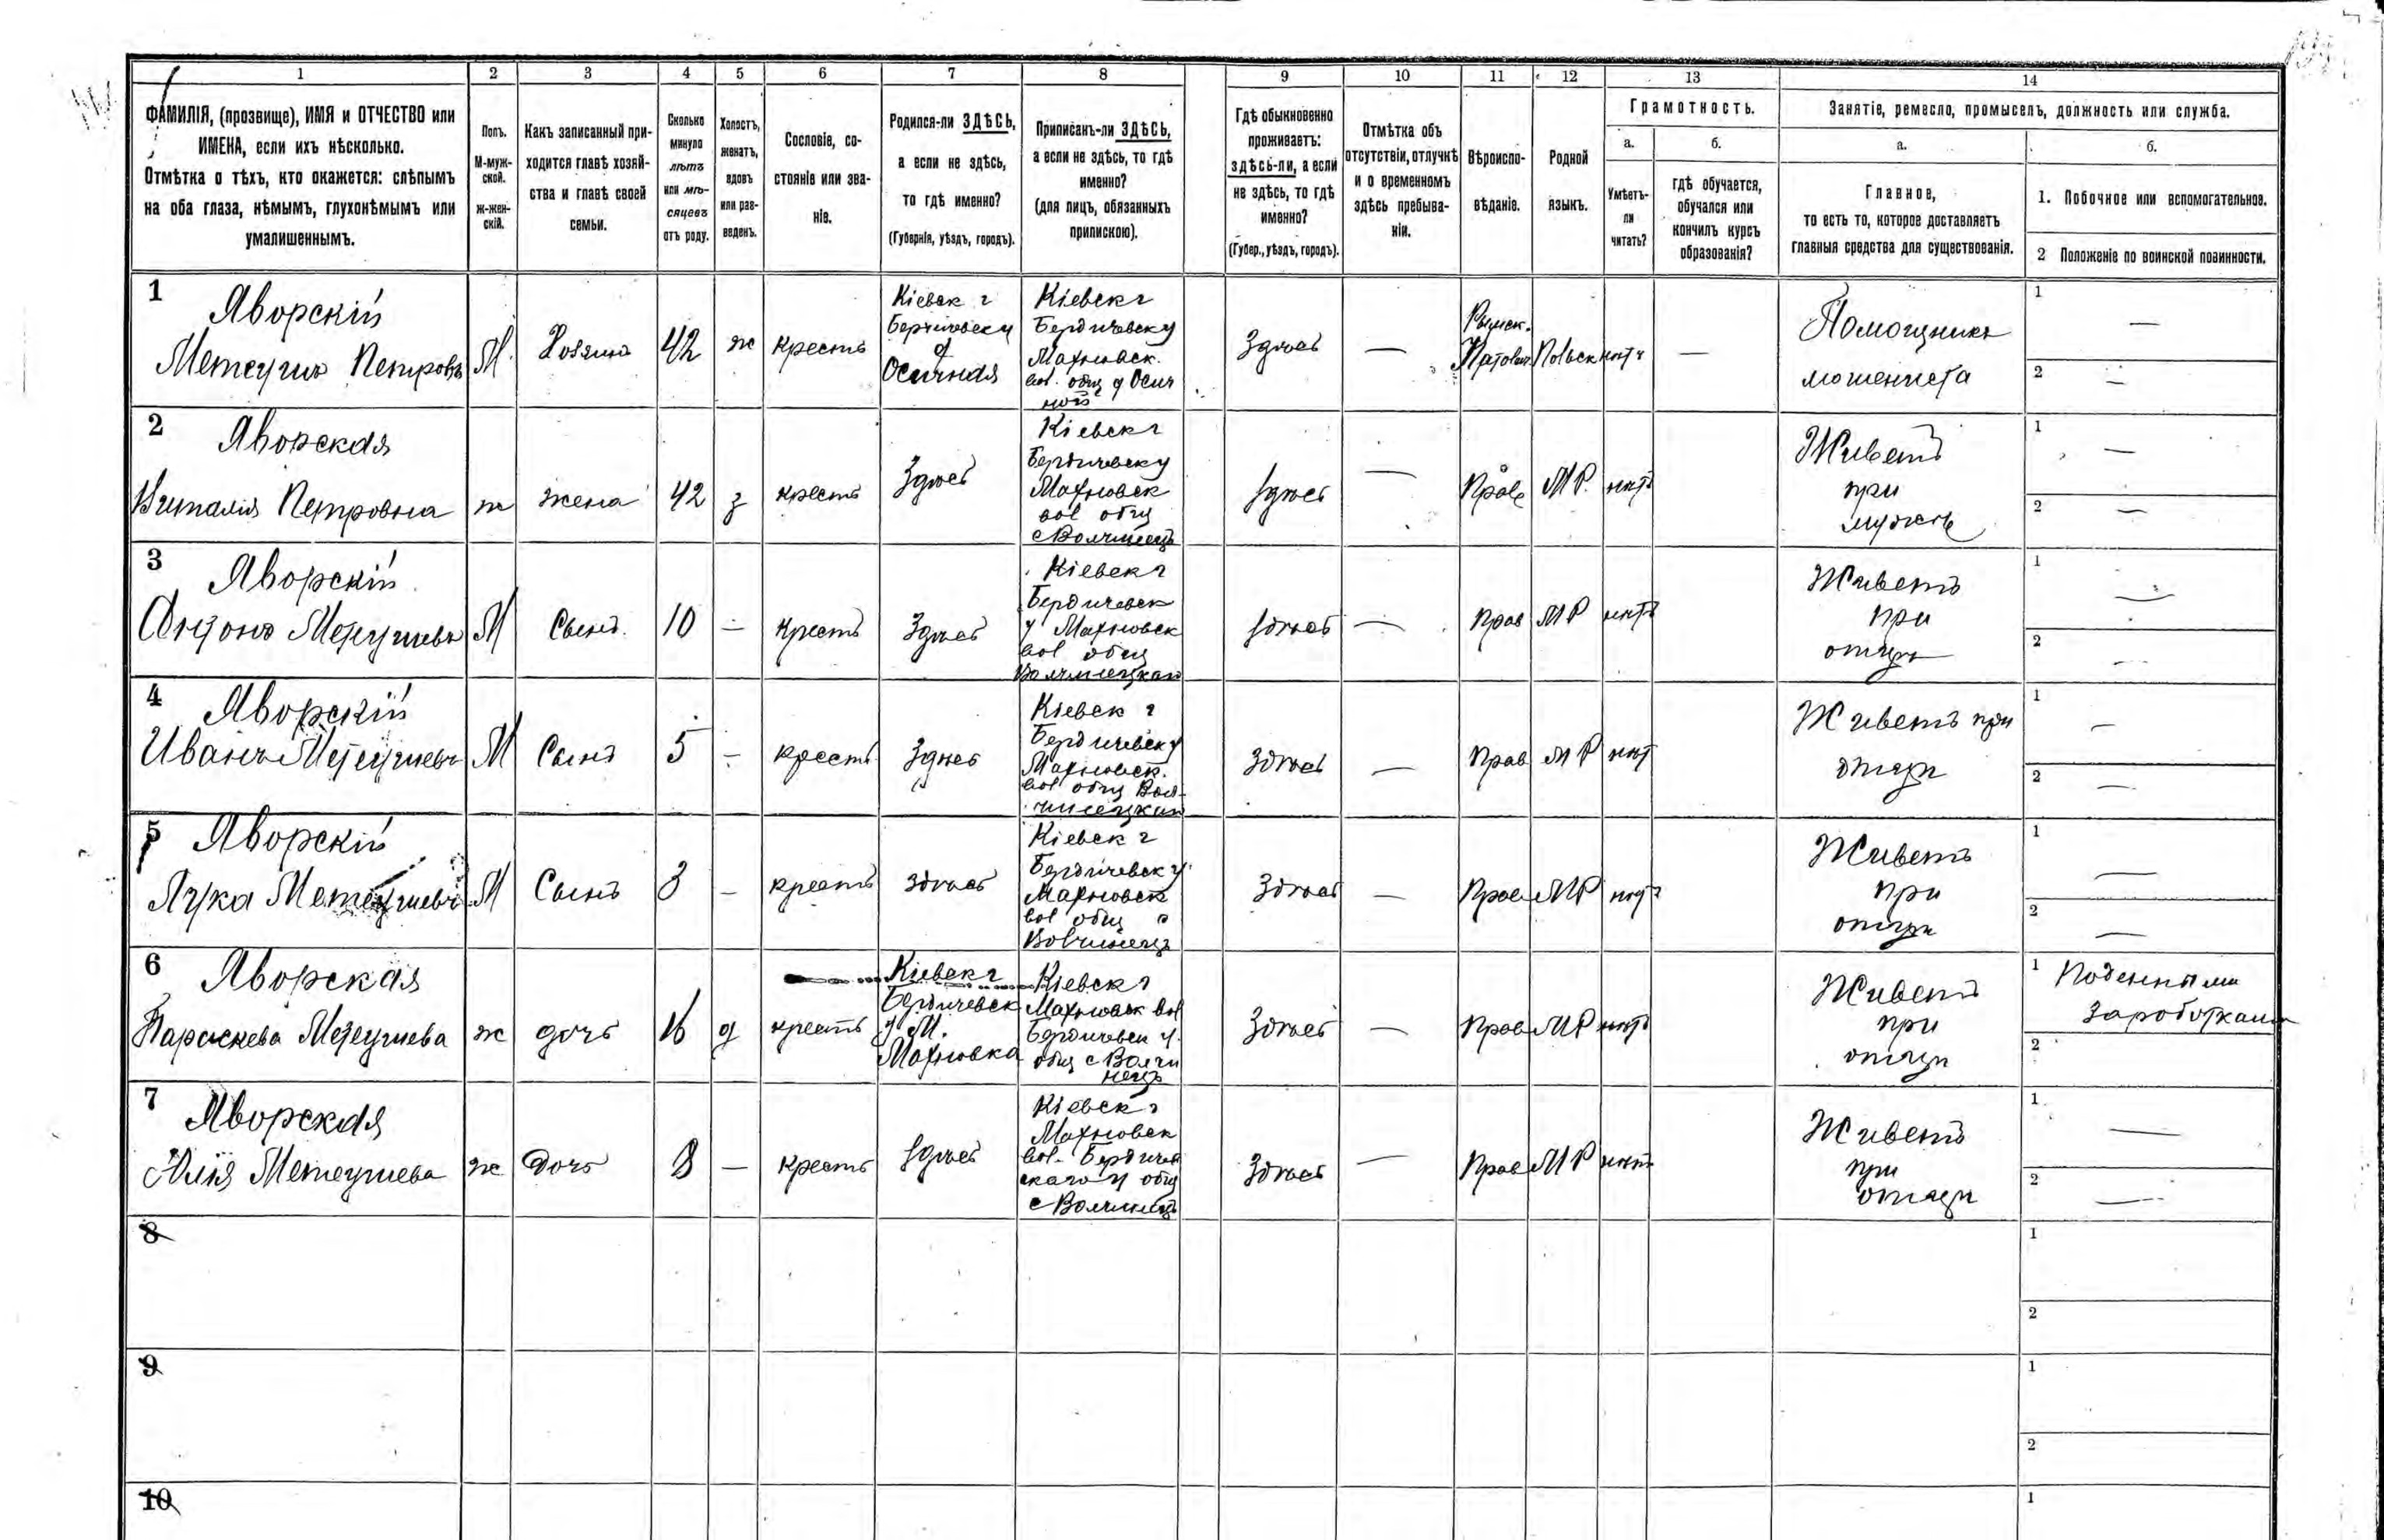 1 2 3 4 5 6 7 8 9 10 11 12 13 14
ФАМИЛІЯ, (прозвище), ИМЯ и ОТЧЕСТВО или
ИМЕНА, если ихъ нѣсколько.
Отмѣтка о тѣхъ, кто окажется: слѣпымъ
на оба глаза, нѣмымъ, глухонѣмымъ или
умалишеннымъ.
Полъ.
М-муж-
ской.
ж-жен-
скій.
Какъ записанный при-
ходится главѣ хозяй-
ства и главѣ своей
семьи.
Сколько
минуло
лѣтъ
или мѣ-
сяцевъ
отъ роду.
Холостъ,
женатъ,
вдовъ
или раз-
веденъ.
Сословіе, со-
стояніе или зва-
ніе.
Родился-ли ЗДѢСЬ,
а если не здѣсь,
то гдѣ именно?
(Губернія, уѣздъ, городъ).
Приписанъ-ли ЗДѢСЬ,
а если не здѣсь, то гдѣ
именно?
(для лицъ, обязанныхъ
припискою).
Гдѣ обыкновенно
проживаетъ:
здѣсь-ли, а если
не здѣсь, то гдѣ
именно?
(Губер., уѣздъ, городъ).
Отмѣтка объ
отсутствіи, отлучкѣ
и о временномъ
здѣсь пребыва-
ніи.
Вѣроиспо-
вѣданіе.
Родной
языкъ.
Грамотность.
а.
Умѣетъ-
ли
читать?
б.
гдѣ обучается,
обучался или
кончилъ курсъ
образованія?
Занятіе, ремесло, промыселъ, должность или служба.
а.
Главное,
то есть то, которое доставляетъ
главныя средства для существованія.
б.
1. Побочное или вспомогательное.
2 Положеніе по воинской повинности.
1
Яворскій
Петровъ
М
Хозяинъ
42
ж
крестъ
Кіевск г
Бердичевск у
Осичная
Кіевск г
Бердичевск у
Махновск.
вол. общ д Осич
ной
Здѣсь
—
Римск.
Католич
Польск
нѣтъ
—
Помощникъ
1 —
2 —
2
Яворская
Виталія Петровна
ж
жена
42
з
крестъ
Здѣсь
Кіевск г
Бердичевск у
Махновск
вол общ
с Волчинецъ
Здѣсь
—
Прав
МР.
нѣтъ
Живетъ
при
мужѣ
1 —
2 —
3
Яворскій
Антонъ
М
Сынъ.
10
—
крестъ
Здѣсь
Кіевск г
Бердичевск
у Махновск
вол общ
Волчинецкаго
Здѣсь
—
Прав
МР
нѣтъ
Живетъ
при
отцѣ
1 —
2 —
4
Яворскій
Иванъ
М
Сынъ
5
—
крестъ
Здѣсь
Кіевск г
Бердичевск у
Махновск.
вол общ Вол-
чинецкаго
Здѣсь
—
Прав
МР
нѣт
Живетъ при
отцѣ
1 —
2 —
5
Яворскій
Лука
М
Сынъ
3
—
крестъ
здѣсь
Кіевск г
Бердичевск у
Махновск
вол общ с
Волчинецъ
Здѣсь
—
Прав
МР
нѣтъ
Живетъ
при
отцѣ
1 —
2 —
6
Яворская
Параскева
ж
дочь
16
д
крестъ
Кіевск г
Бердичевск
у М.
Махновка
Кіевск г
Махновск вол
Бердичевск у.
общ с Волчи
нецъ
Здѣсь
—
Прав
МР
нѣтъ
Живетъ
при
отцѣ
1 Поденными
Заработками
2
7
Яворская
Юлія
ж
Дочь
8
—
крестъ
Здѣсь
Кіевск г
Махновск
вол. Бердичев
скаго у общ
с Волчинецъ
Здѣсь
—
Прав
МР
нѣтъ
Живетъ
при
отцѣ
1 —
2 —
8
1
2
9
1
2
10
1